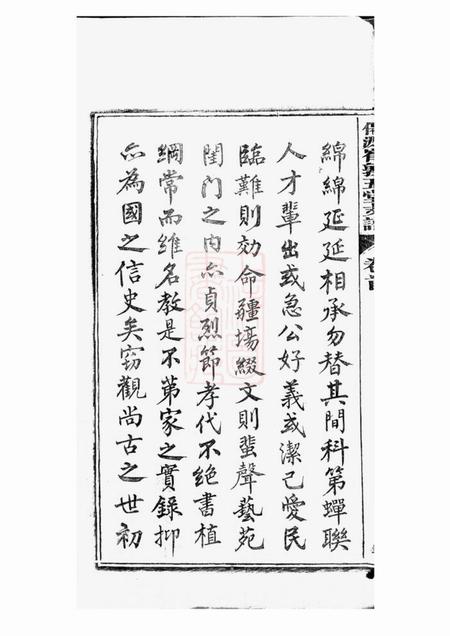 綿綿延延相承勿替其間科第蟬聯
人才輩出或急公好義或潔己愛民
臨難則効命疆場綴文則蜚聲藝苑
閨门之內亦貞烈節孝代不絕書植
綱常而維名教是不苐家之實錄抑
亦為國之信史矣窃觀尚古之世初